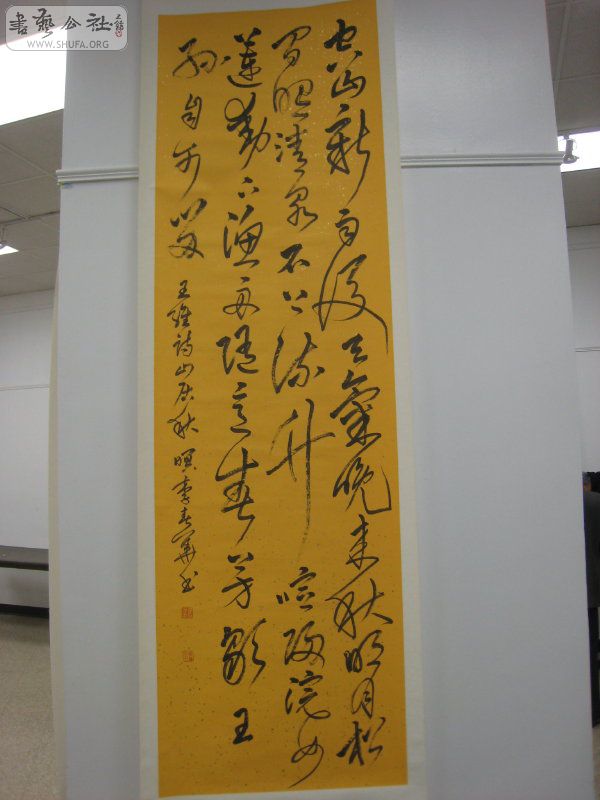 書藝公社
WWW.SHUFA.ORG
空山新雨後天氣晚来秋明月松
間照清泉石上流竹喧歸浣女
蓮動下漁舟隨意春芳歇王
孫自可留
王維詩山居秋暝李書